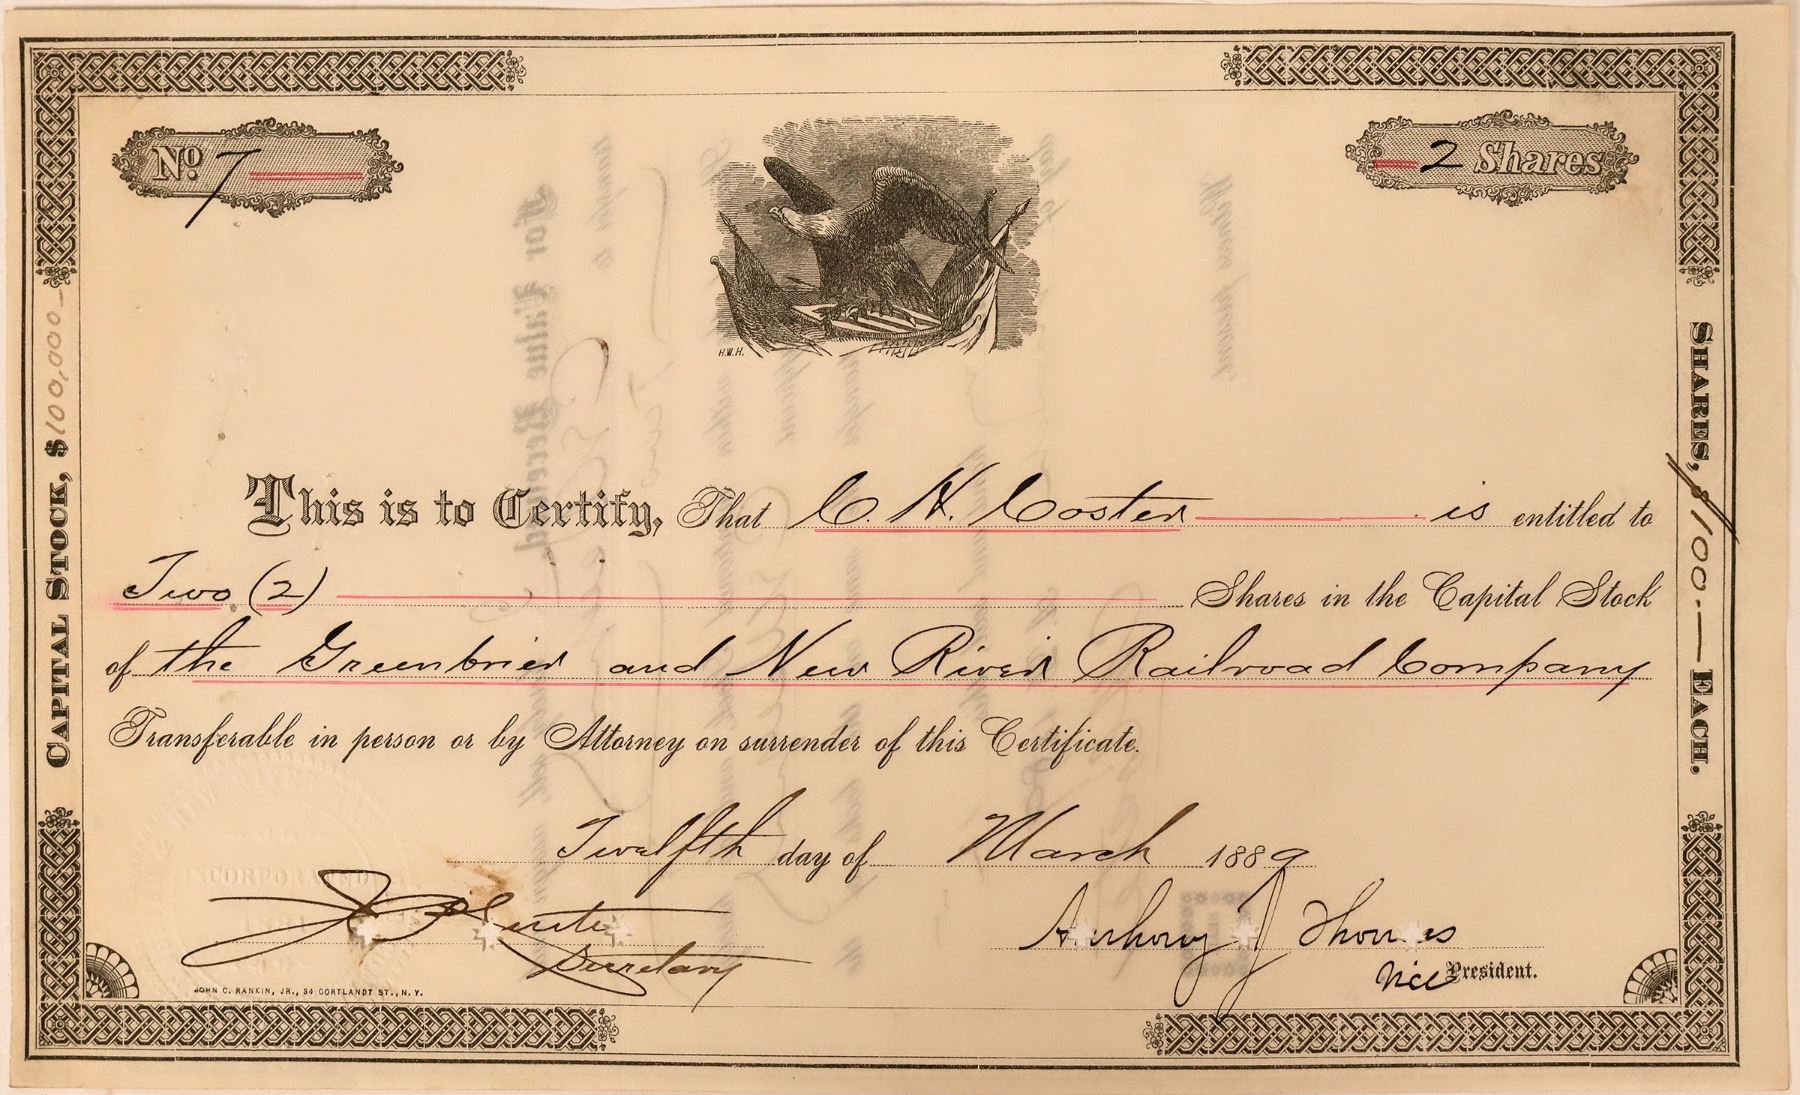 No. 7
2 Shares
H.W.H.
CAPITAL STOCK, $100,000-
SHARES, $100.- EACH.
This is to Certify, That C. H. Coster is entitled to
Two (2) Shares in the Capital Stock
of the Greenbrier and New River Railroad Company
Transferable in person or by Attorney on surrender of this Certificate.
Twelfth day of March 1889
Secretary
Anthony J Thomas
Vice President.
INCORPORATED
JOHN C. RANKIN, JR., 34 CORTLANDT ST., N.Y.